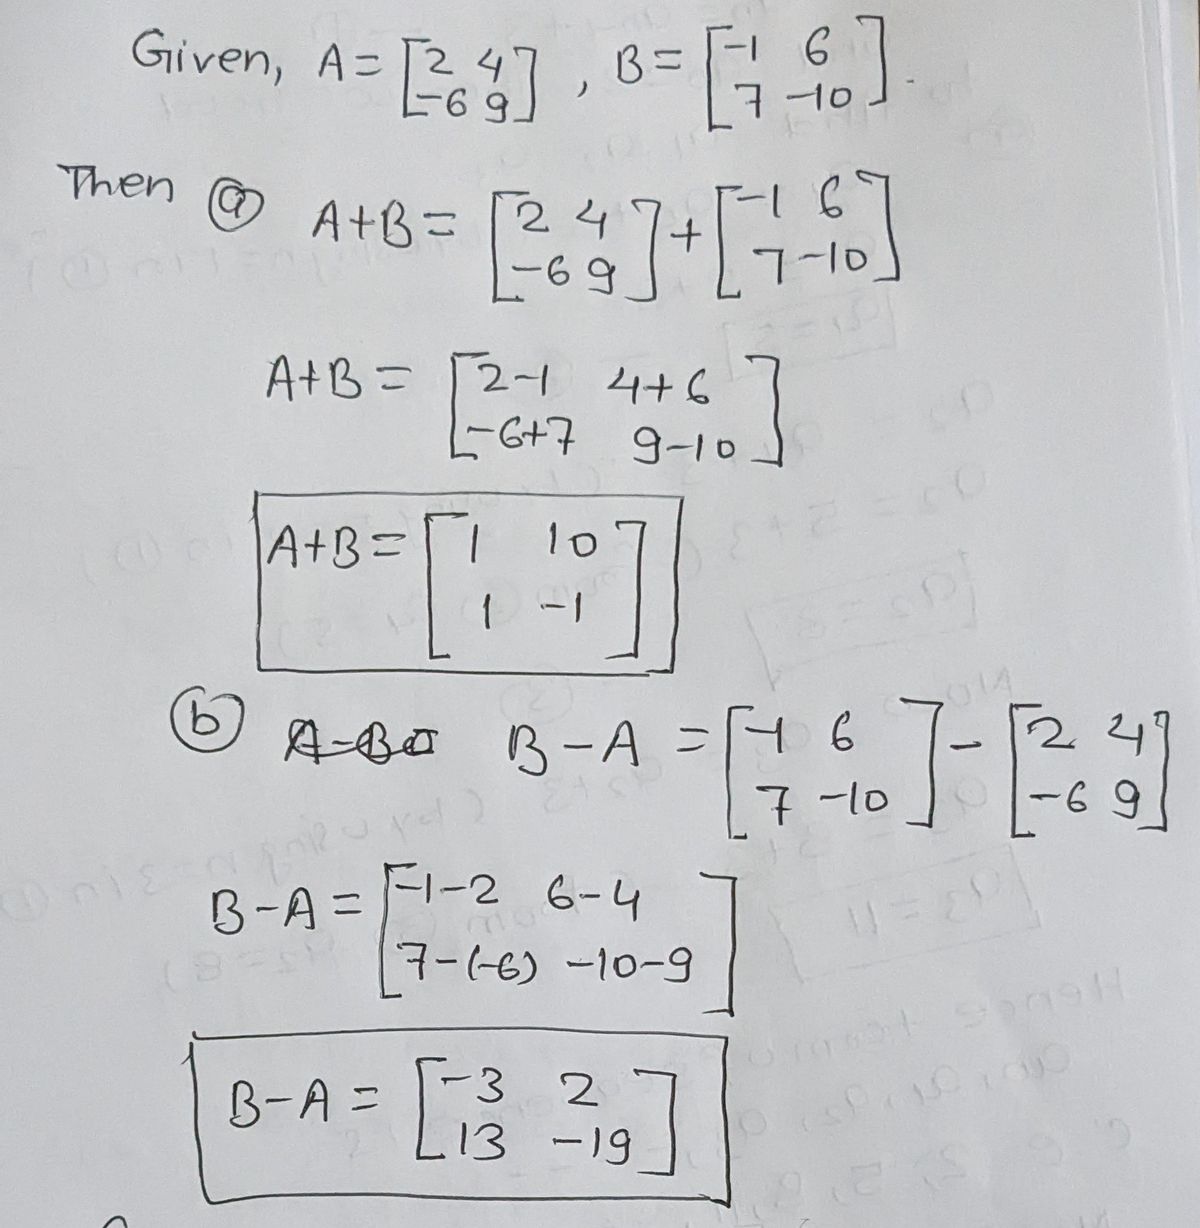 Given, A = [2 4], B = [-1 6].
[-6 9] [7 -10]
Then (a) A+B = [2 4] + [-1 6]
[-6 9] [7 -10]
A+B = [2-1 4+6]
[-6+7 9-10]
A+B = [1 10]
[1 -1]
(b) B-A = [-1 6] - [2 4]
[7 -10] [-6 9]
B-A = [-1-2 6-4]
[7-(-6) -10-9]
B-A = [-3 2]
[13 -19]